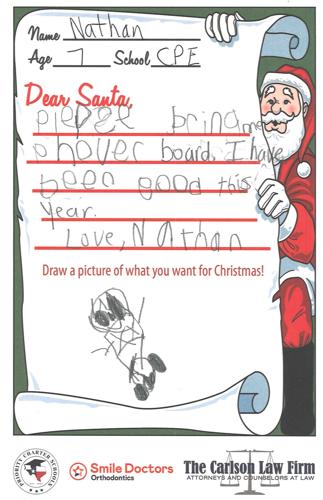 Name Nathan
Age 7 School CPE
Dear Santa,
pleaze bring me
a hover board. I have
been good this
year.
Love, Nathan
Draw a picture of what you want for Christmas!
PRIORITY CHARTER SCHOOLS
Smile Doctors
Orthodontics
The Carlson Law Firm
ATTORNEYS AND COUNSELORS AT LAW